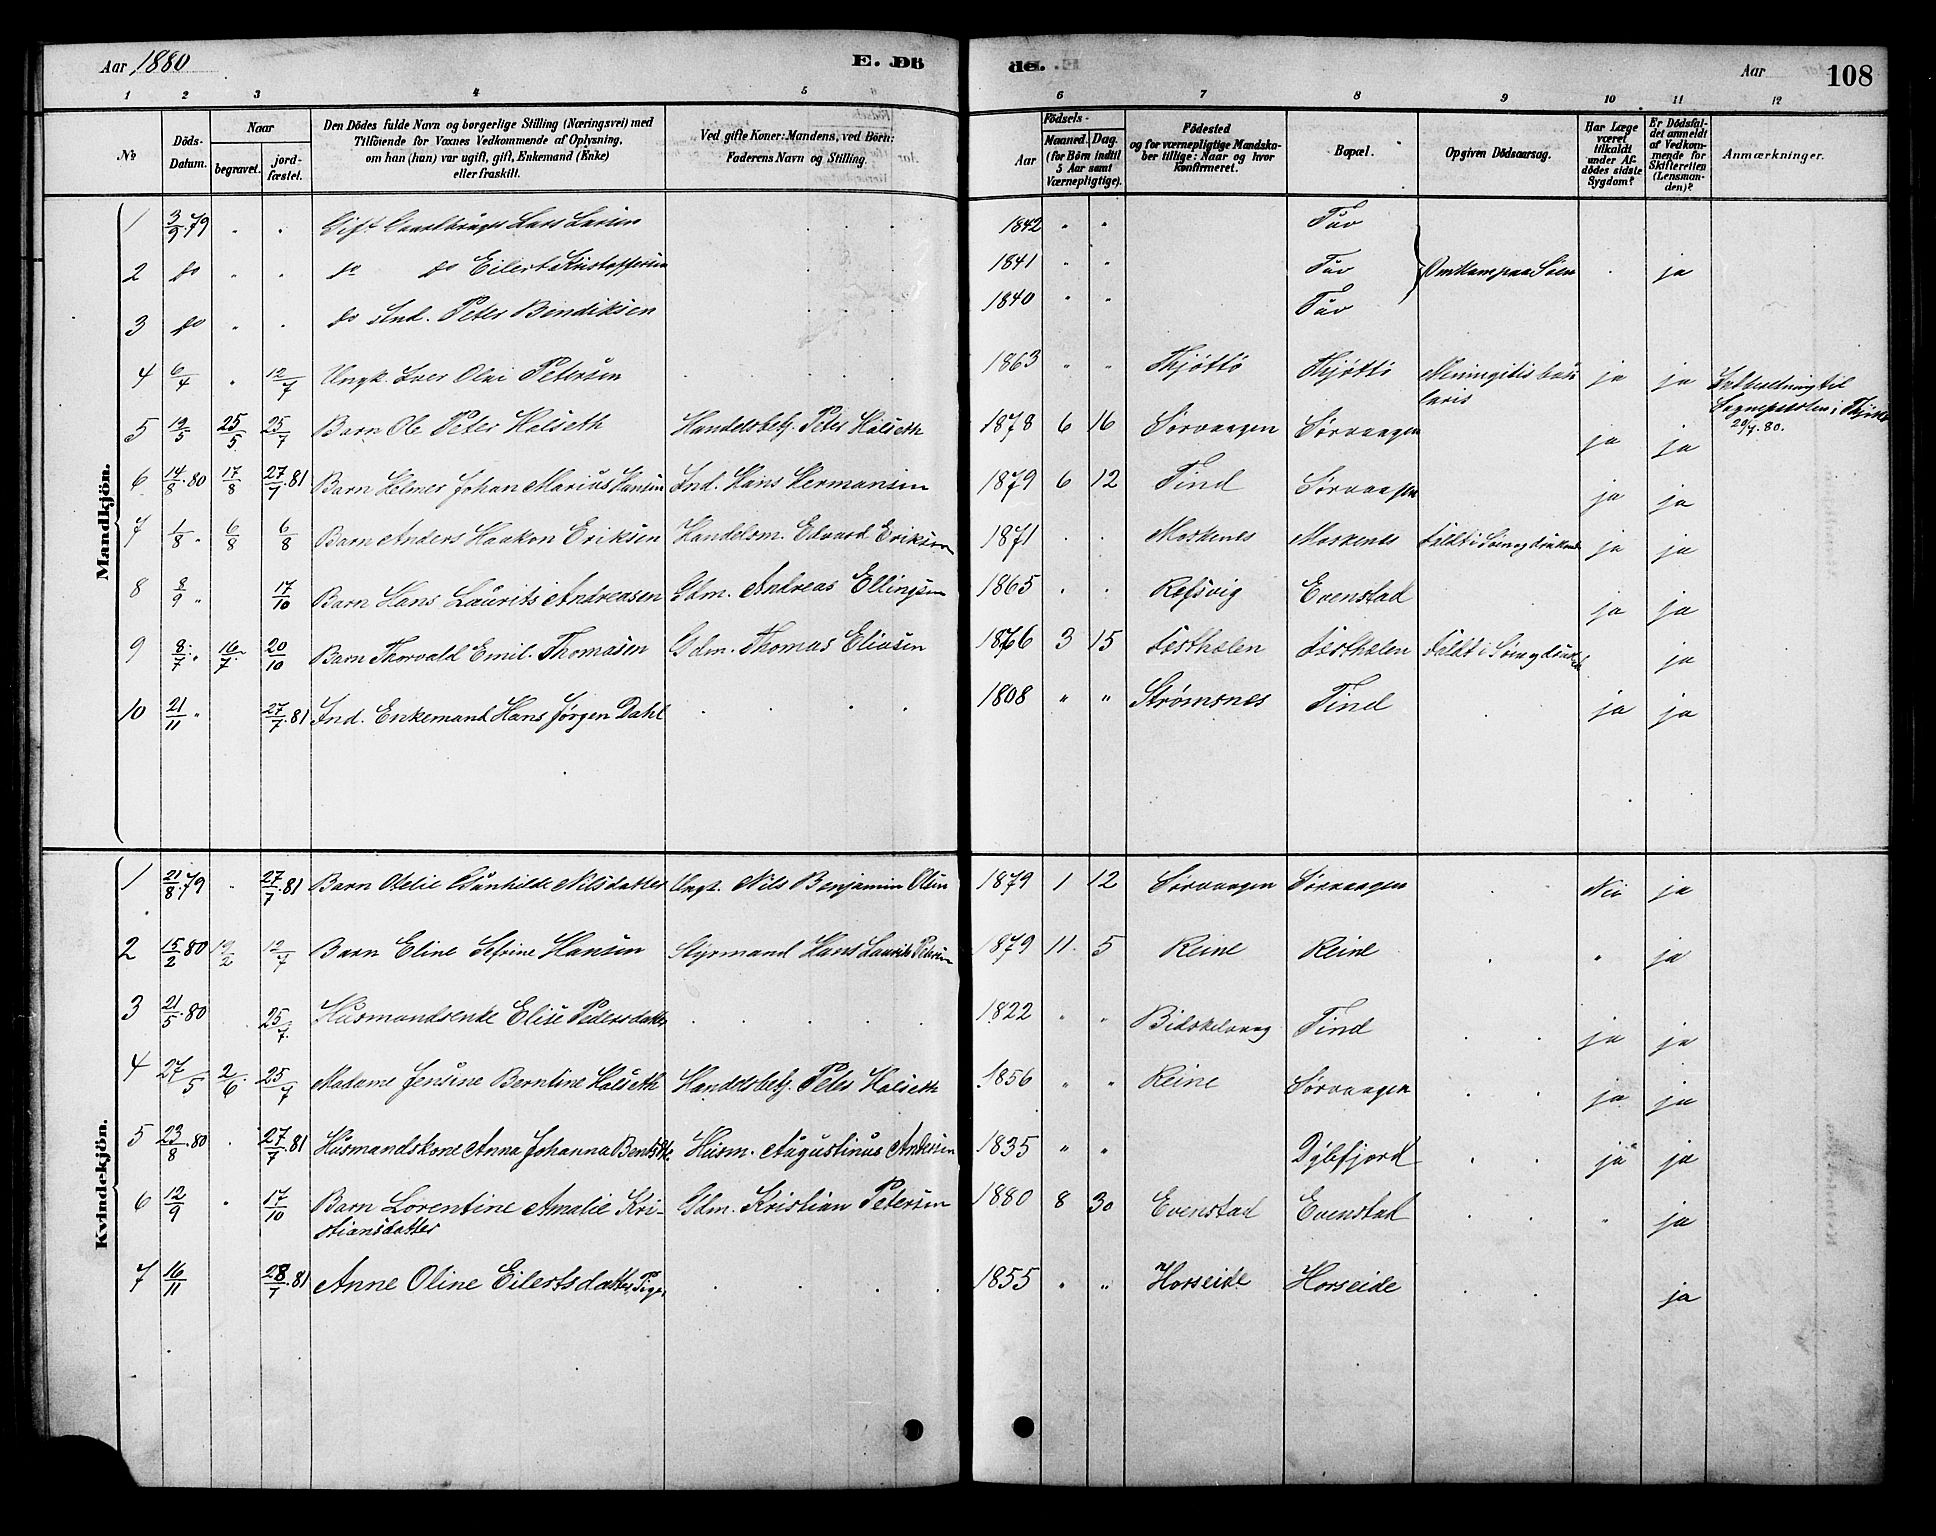 Aar 1880
E. Dö
de.
Aar
108
1 2 3 4 5 6 7 8 9 10 11 12
No.
Döds-Datum.
Naar
begravet.
jord-fæstet.
Den Dödes fulde Navn og borgerlige Stilling (Næringsvei) med
Tilföiende for Voxnes Vedkommende af Oplysning,
om han (hun) var ugift, gift, Enkemand (Enke)
eller fraskilt.
Ved gifte Koner: Mandens, ved Børn:
Faderens Navn og Stilling.
Födsels-
Aar
Maaned. Dag.
(for Börn indtil
5 Aar samt
Værnepligtige).
Födested
og for værnepligtige Mandska-
ber tillige: Naar og hvor
konfirmeret.
Bopæl.
Opgiven Dödsaarsag.
Har Læge
været
tilkaldt
under Af-
dödes sidste
Sygdom?
Er Dödsfal-
det anmeldt
af Vedkom-
mende for
Skifteretten
(Lensman-
den)?
Anmærkninger.
Mandkjön.
1 3/9.79 " " Gift Lars Larsen 1842 " " Tuv
2 do " " do do Eilert Kristoffersen 1841 " " Tuv Omkom paa Søen ja
3 do " " do Ind. Peter Bendiksen 1840 " " Tuv
4 6/4 " 12/7 Ungk. Iver Olai Petersen 1863 " " Thjøttø Thjøttø Meningitis basilaris ja ja Indberetning til
Sognepresten i Thjøttø
29/7.80.
5 19/5 25/5 25/7 Barn Ole Peter Halseth Handelsbetj. Peter Halseth 1878 6 16 Sørvaagen Sørvaagen ja ja
6 14/8.80 17/8 27/7.81 Barn Helmer Johan Marius Hansen Ind. Hans Hermansen 1879 6 12 Tind Sørvaagen ja ja
7 1/8 " 6/8 6/8 Barn Anders Haakon Eriksen Handelsm. Edvard Eriksen 1871 . . Moskenes Moskenes Faldt i Søen og druknede ja ja
8 8/9 " 17/10 Barn Hans Laurits Andreasen Gdm. Andreas Ellingsen 1865 . . Refsvig Evenstad ja ja
9 8/7 " 16/7 20/10 Barn Thorvald Emil Thomasen Gdm. Thomas Eliasen 1876 3 15 Festhælen Festhælen Faldt i Søen og druknede ja
10 21/11 " 27/7.81 Ind. Enkemand Hans Jørgen Dahl 1808 " " Strømsnes Tind ja ja
Kvindekjön.
1 21/8.79 " 27/7.81 Barn Otelie Gunhilde Nilsdatter Ungk. Nils Benjamin Olsen 1879 1 12 Sørvaagen Sørvaagen Nei ja
2 15/2.80 19/2 12/7 Barn Eline Sefrine Hansen Styrmand Hans Laurits Petersen 1879 11 5 Reine Reine " ja
3 21/5.80 25/7 Husmandsenke Elise Pedersdatter 1822 " " Tind ja ja
4 27/5 2/6 25/7 Madame Jensine Berntine Halseth Handelsbetj. Peter Halseth 1856 " " Reine Sørvaagen ja ja
5 23/8.80 27/7.81 Husmandskone Anna Johanna Husm. Augustinus Andersen 1835 " " Dybfjord ja ja
6 12/9 " 17/10 Barn Lorentine Amalie Kri-
stiansdatter Gdm. Kristian Petersen 1880 8 30 Evenstad Evenstad " ja
7 16/11 28/7.81 Anne Oline Eilertsdatter, Pige, 1855 " " Horseide Horseide ja